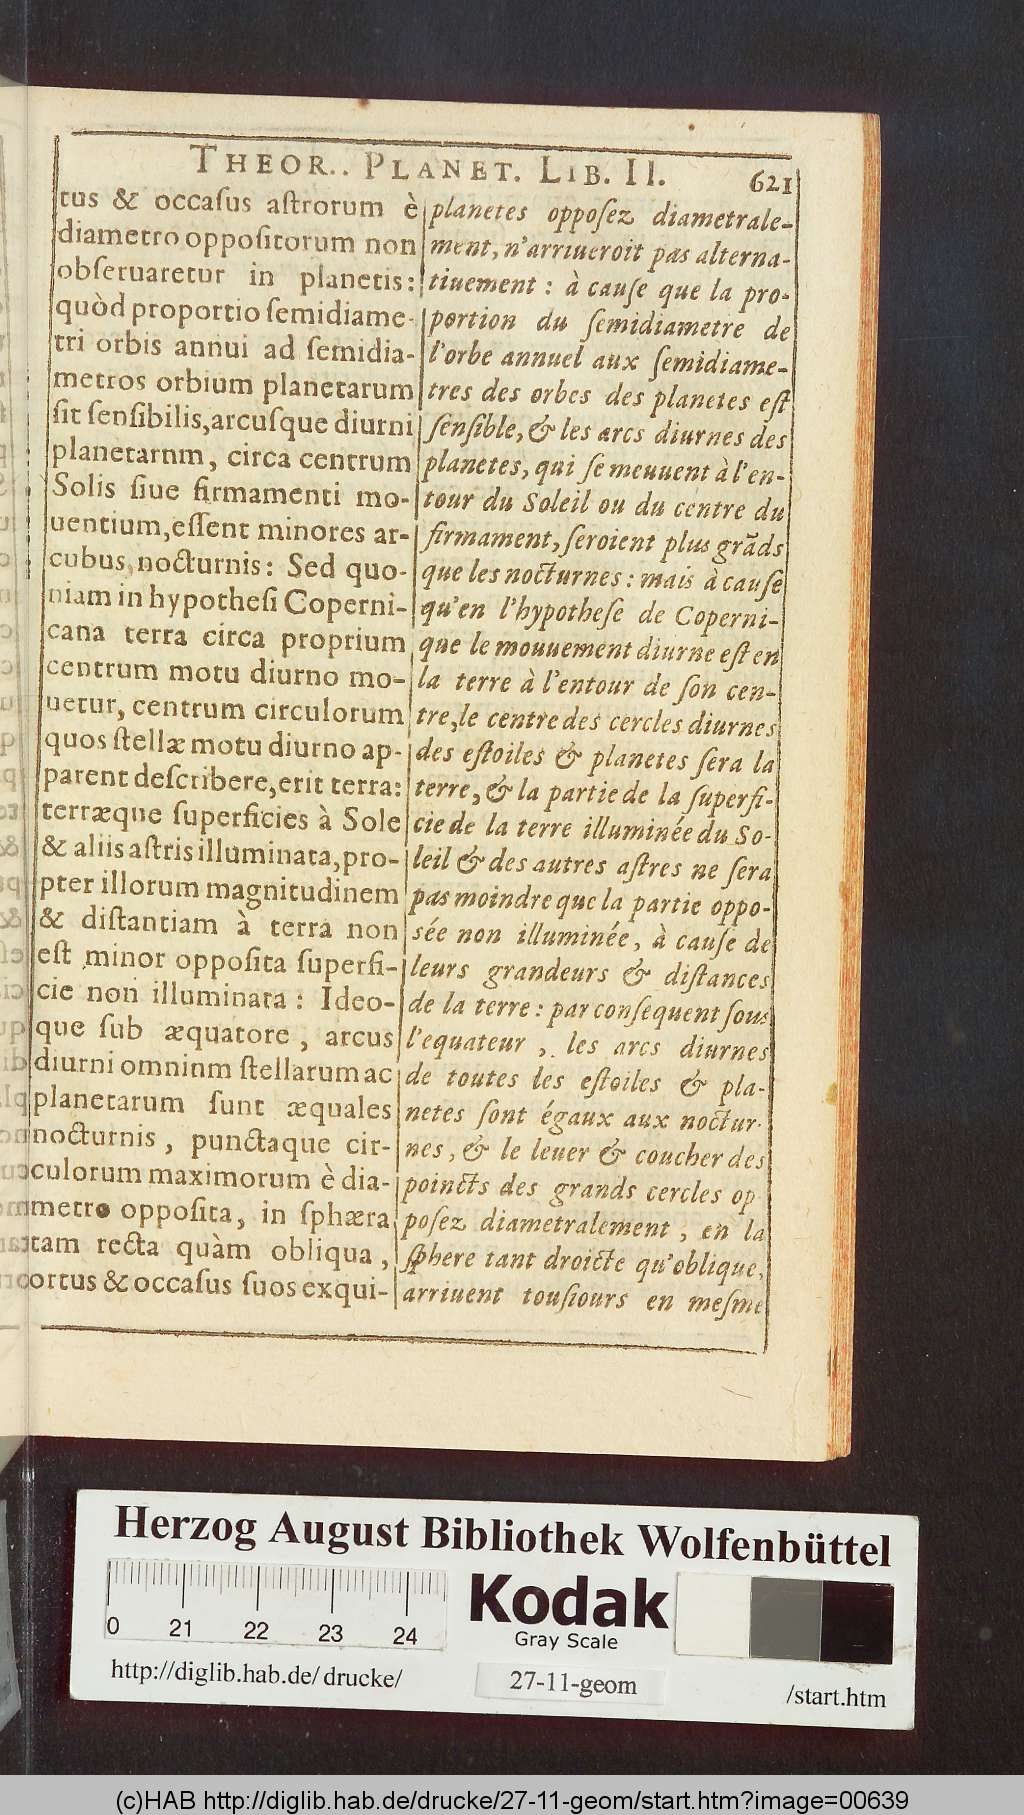 THEOR.. PLANET. LIB. II.
621
tus & occaſus aſtrorum è
diametro oppoſitorum non
obſeruaretur in planetis:
quòd proportio ſemidiame-
tri orbis annui ad ſemidia-
metros orbium planetarum
ſit ſenſibilis, arcuſque diurni
planetarnm, circa centrum
Solis ſiue firmamenti mo-
uentium, eſſent minores ar-
cubus nocturnis: Sed quo-
niam in hypotheſi Coperni-
cana terra circa proprium
centrum motu diurno mo-
uetur, centrum circulorum
quos ſtellæ motu diurno ap-
parent deſcribere, erit terra:
terræque ſuperficies à Sole
& aliis aſtris illuminata, pro-
pter illorum magnitudinem
& diſtantiam à terra non
eſt minor oppoſita ſuperfi-
cie non illuminata: Ideo-
que ſub æquatore, arcus
diurni omninm ſtellarum ac
planetarum ſunt æquales
nocturnis, punctaque cir-
culorum maximorum è dia-
metro oppoſita, in ſphæra
tam recta quàm obliqua,
ortus & occaſus ſuos exqui-
planetes oppoſez diametrale-
ment, n'arriueroit pas alterna-
tiuement: à cauſe que la pro-
portion du ſemidiametre de
l'orbe annuel aux ſemidiame-
tres des orbes des planetes eſt
ſenſible, & les arcs diurnes des
planetes, qui ſe meuuent à l'en-
tour du Soleil ou du centre du
firmament, ſeroient plus grãds
que les nocturnes: mais à cauſe
qu'en l'hypotheſe de Coperni-
que le mouuement diurne eſt en
la terre à l'entour de ſon cen-
tre, le centre des cercles diurnes
des eſtoiles & planetes ſera la
terre, & la partie de la ſuperfi-
cie de la terre illuminée du So-
leil & des autres aſtres ne ſera
pas moindre que la partie oppo-
sée non illuminée, à cauſe de
leurs grandeurs & diſtances
de la terre: par conſequent ſous
l'equateur, les arcs diurnes
de toutes les eſtoiles & pla-
netes ſont égaux aux noctur-
nes, & le leuer & coucher des
poincts des grands cercles op
poſez diametralement, en la
ſphere tant droicte qu'oblique,
arriuent touſiours en meſme
Herzog August Bibliothek Wolfenbüttel
0 21 22 23 24
Kodak
Gray Scale
http://diglib.hab.de/drucke/
27-11-geom
/start.htm
(c)HAB http://diglib.hab.de/drucke/27-11-geom/start.htm?image=00639